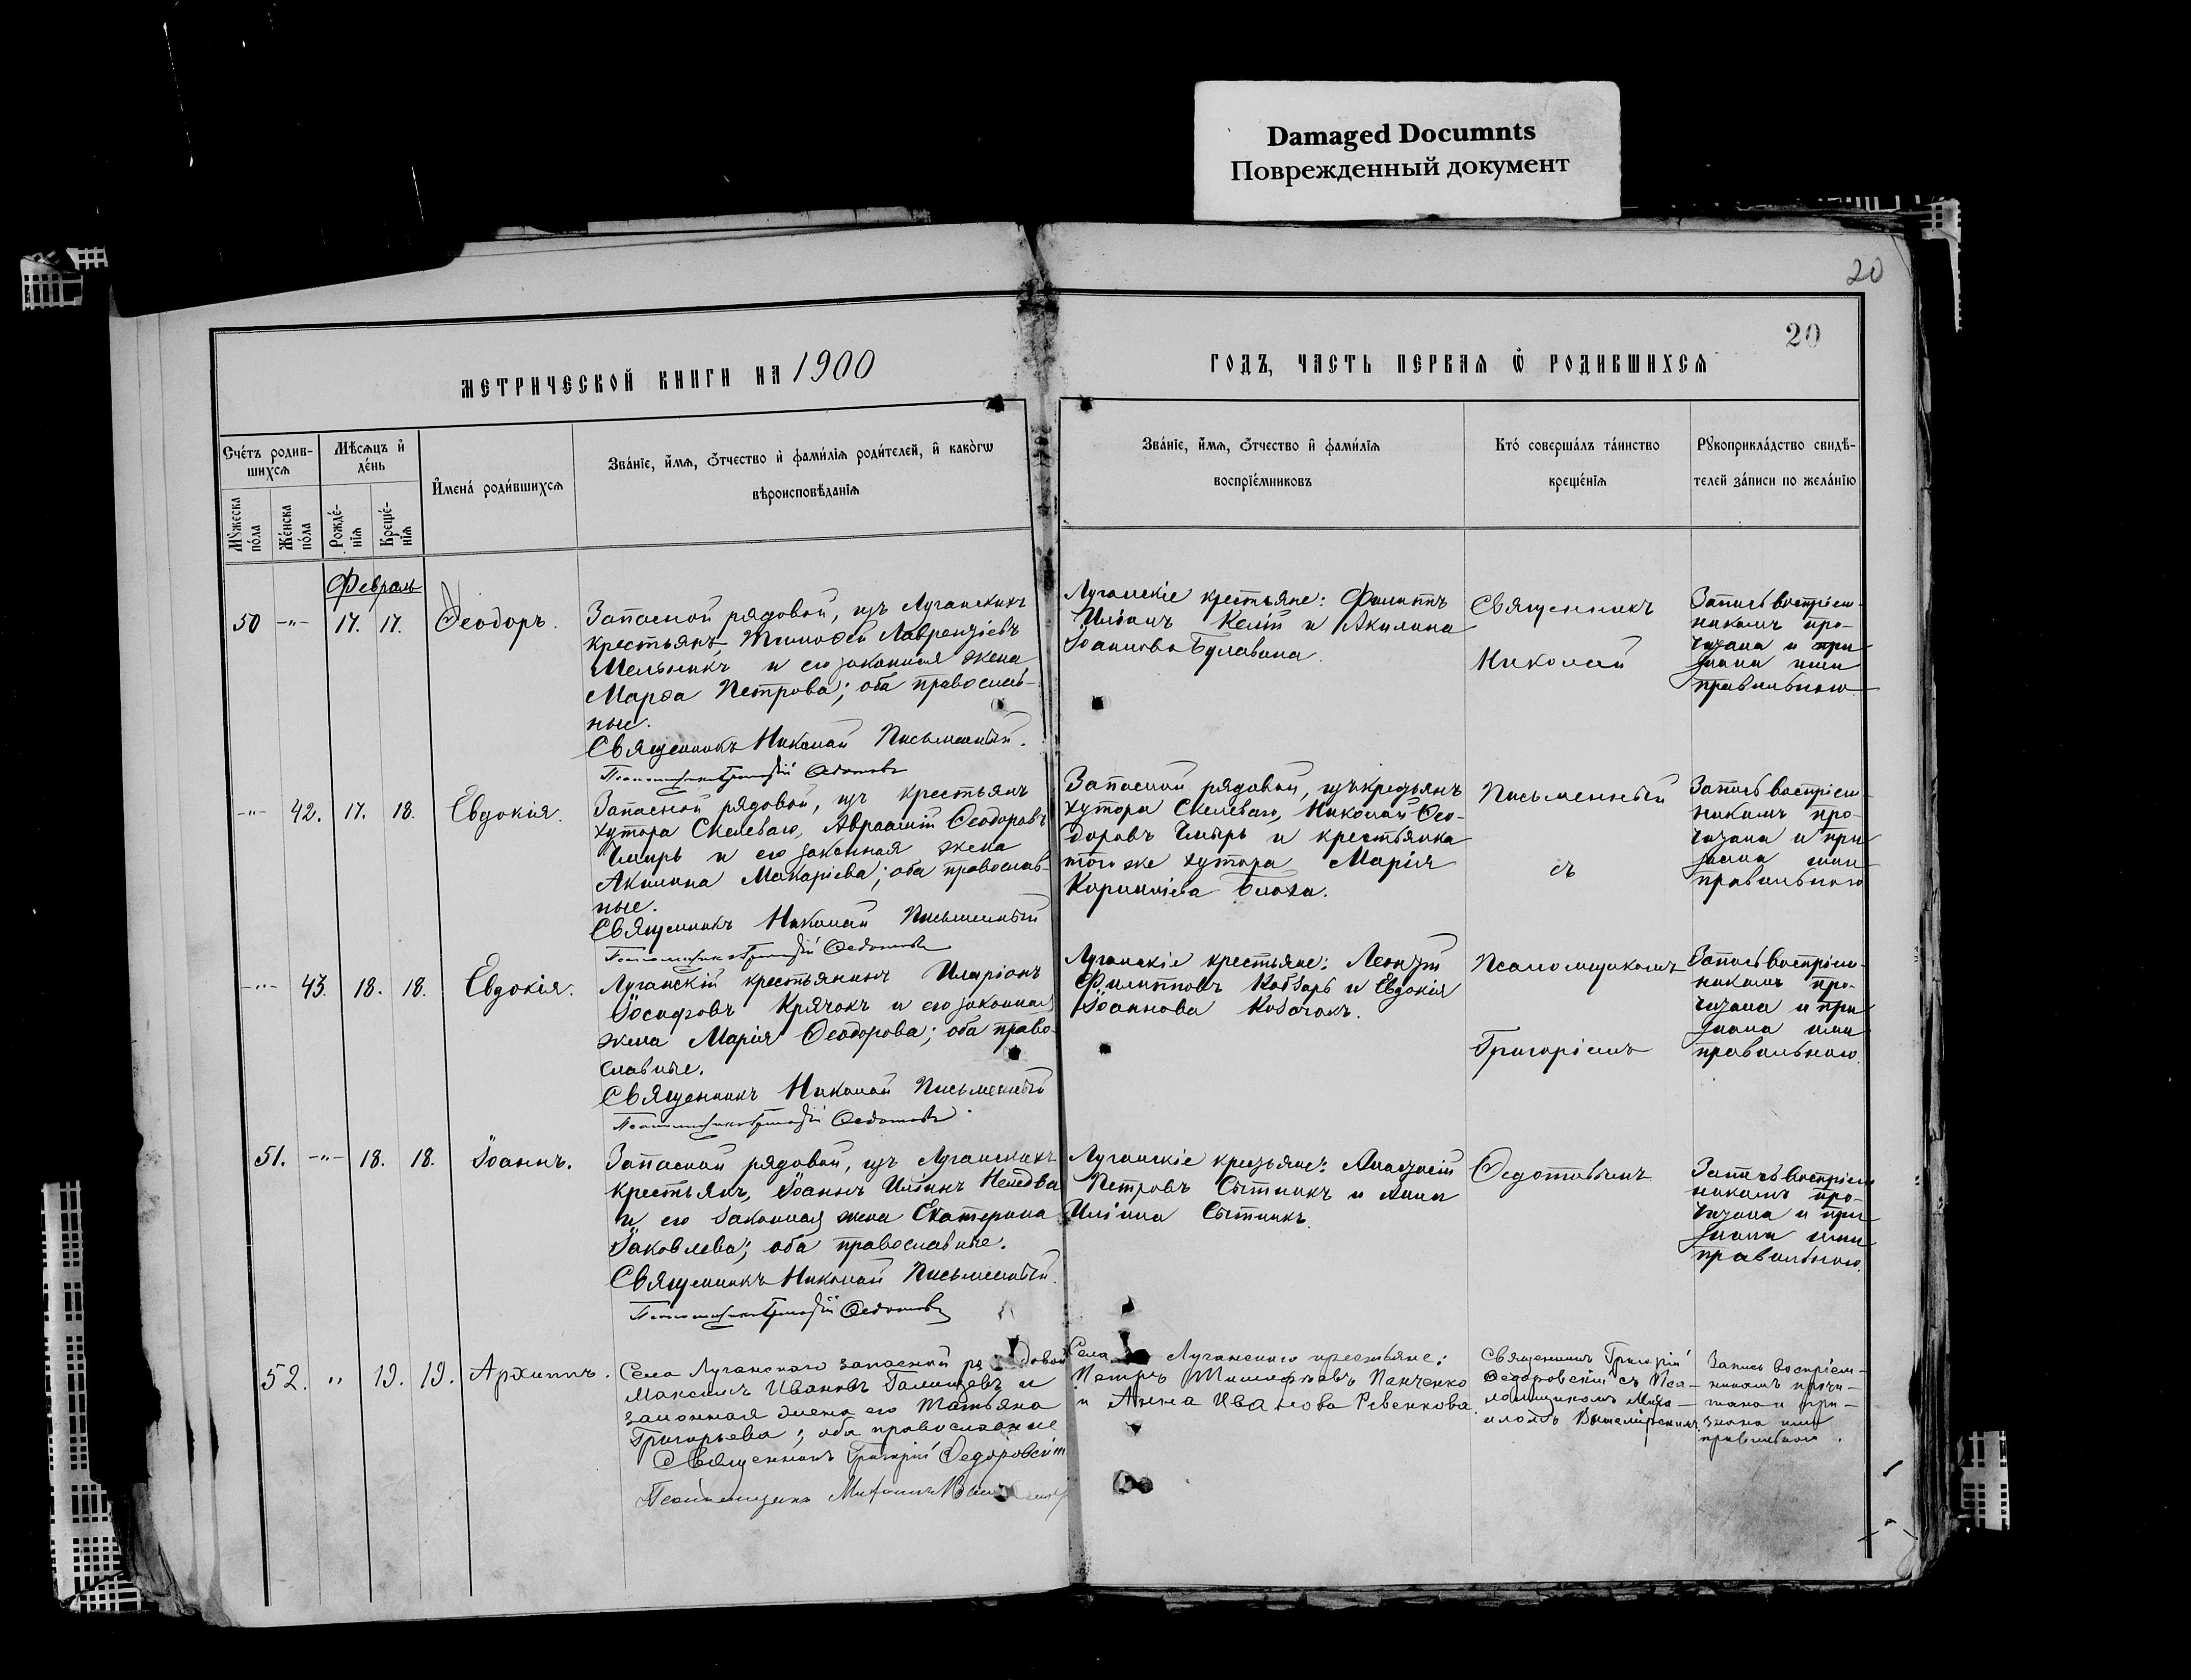 Damaged Documnts
Поврежденный документ
20
20
МЕТРИЧЕСКОЙ КНИГИ НА 1900
ГОДЪ, ЧАСТЬ ПЕРВАЯ Ѿ РОДИВШИХСЯ
Сче́тъ родив-
шихсѧ
Мѣсѧцъ и҆
де́нь
Мꙋ́жеска
по́ла
Же́нска
по́ла
Рожде́-
нїѧ
Креще́-
нїѧ
И҆мена̀ роди́вшихсѧ
Зва́нїе, и҆́мѧ, ѻ҆́тчество и҆ фами́лїѧ роди́телей, и҆ како́гѡ
вѣроисповѣ́данїѧ
Зва́нїе, и҆́мѧ, ѻ҆́тчество и҆ фами́лїѧ
воспрїе́мниковъ
Кто̀ соверша́лъ та́инство
креще́нїѧ
Рꙋкоприкла́дство свидѣ́-
телей за́писи по жела́нїю
Февраль
50 -"- 17. 17. Ѳеодоръ.
Запасной рядовой, изъ Луганскихъ
крестьянъ, Тимоѳей Лаврентіевъ
Мельникъ и его законная жена
Марѳа Петрова; оба православ-
ные.
Священникъ Николай Письменный.
Псаломщикъ Григорій Ѳедотовъ
Луганскіе крестьяне: Филиппъ
и Акилина
Іоаннова Булавина.
Священникъ
Николай
Запись воспріем-
никамъ про-
читана и при
знана ими
правильною
-"- 42. 17. 18. Евдокія.
Запасной рядовой, изъ крестьянъ
хутора Скелеваго, Авраамій Ѳеодоровъ
Чмырь и его законная жена
Акилина Макаріева; оба православ-
ные.
Священникъ Николай Письменный
Псаломщикъ Григорій Ѳедотовъ
Запасной рядовой, изъ крестьянъ
хутора Скелеваго, Николай Ѳео-
доровъ Чмырь и крестьянка
того же хутора Марія
Корниліева Блоха.
Письменный
съ
Запись воспріем-
никамъ про-
читана и при
знана ими
правильною
-"- 43. 18. 18. Евдокія.
Луганскій крестьянинъ Иларіонъ
Іосифовъ Крячокъ и его законная
жена Марія Ѳеодорова; оба право-
славные.
Священникъ Николай Письменный
Псаломщикъ Григорій Ѳедотовъ.
Луганскіе крестьяне: Леонтій
Филипповъ Кобзарь и Евдокія
Іоаннова
Псаломщикомъ
Григоріемъ
Запись воспріем-
никамъ про-
читана и при
знана ими
правильною.
51. -"- 18. 18. Іоаннъ.
Запасной рядовой, изъ Луганскихъ
крестьянъ, Іоаннъ Ильинъ
и его законная жена Екатерина
Іаковлева; оба православные.
Священникъ Николай Письменный.
Псаломщикъ Григорій Ѳедотовъ
Луганскіе крестьяне: Анастасій
Петровъ Сытникъ и Анна
Иліина Сытникъ.
Ѳедотовымъ
Запись воспріем
никамъ про-
читана и при
знана ими
правильною.
52. " 19. 19. Архиппъ.
Села Луганскаго запасной рядовой
Максимъ Ивановъ и
законная жена его Татьяна
Григорьева; оба православные
Священникъ Григорій Ѳедоровскій
Псаломщикъ Михаилъ
Села Луганскаго крестьяне:
Петръ Тимоѳеевъ Панченко
и Анна Иванова Ревенкова.
Священникъ Григорій
Ѳедоровскій съ Пса-
ломщикомъ Миха-
иломъ
Запись воспріем-
никамъ прочи-
тана и при-
знана ими
правильною.